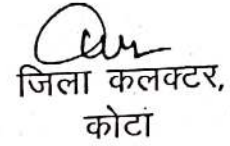 जिला कलक्टर,
कोटा